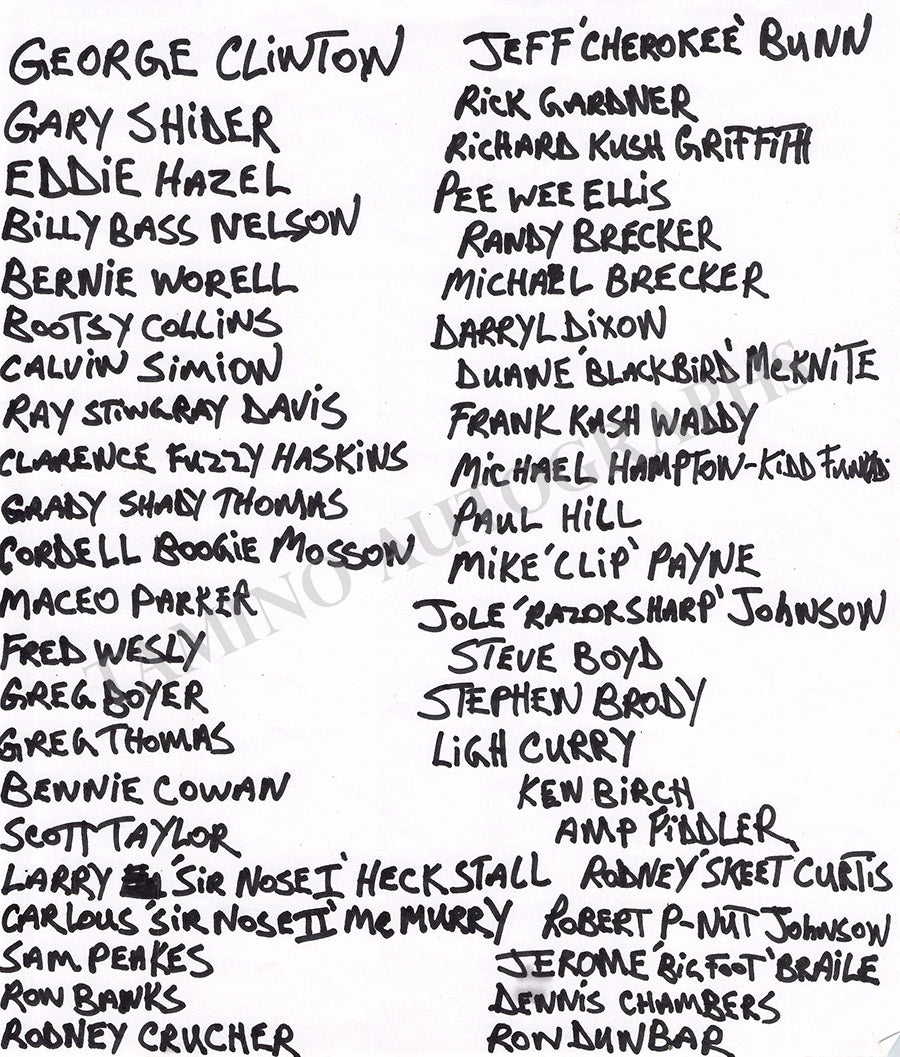 GEORGE CLINTON
GARY SHIDER
EDDIE HAZEL
BILLY BASS NELSON
BERNIE WORELL
BOOTSY COLLINS
CALVIN SIMION
RAY STINGRAY DAVIS
CLARENCE FUZZY HASKINS
GRADY SHADY THOMAS
CORDELL BOOGIE MOSSON
MACEO PARKER
FRED WESLY
GREG BOYER
GREG THOMAS
BENNIE COWAN
SCOTT TAYLOR
LARRY 'SIR NOSE I' HECKSTALL
CARLOUS 'SIR NOSE II' MC MURRY
SAM PEAKES
RON BANKS
RODNEY CRUCHER
JEFF 'CHEROKEE' BUNN
RICK GARDNER
RICHARD KUSH GRIFFITH
PEE WEE ELLIS
RANDY BRECKER
MICHAEL BRECKER
DARRYL DIXON
DUANE 'BLACKBIRD' McKNITE
FRANK KASH WADDY
MICHAEL HAMPTON-KIDD
PAUL HILL
MIKE 'CLIP' PAYNE
JOLE 'RAZORSHARP' JOHNSON
STEVE BOYD
STEPHEN BRODY
LIGH CURRY
KEN BIRCH
AMP FIDDLER
RODNEY 'SKEET CURTIS
ROBERT P-NUT JOHNSON
JEROME 'BIGFOOT' BRAILE
DENNIS CHAMBERS
RON DUNBAR
TAMINO AUTOGRAPHS